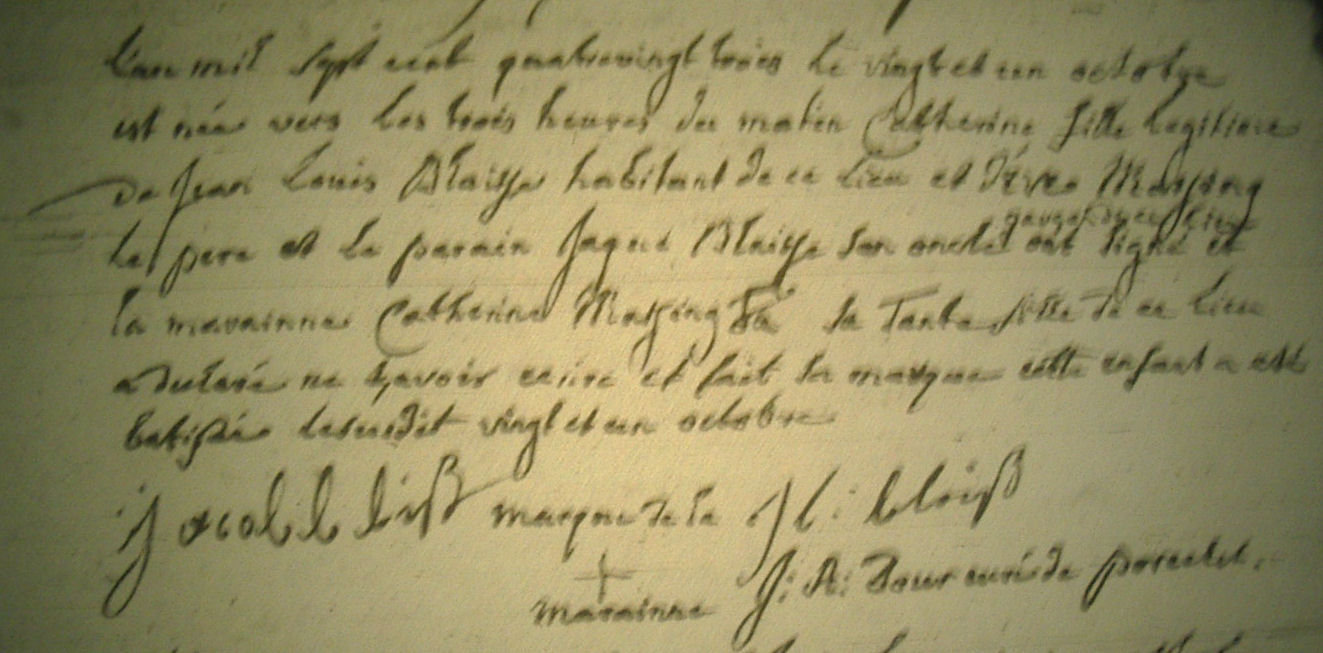 L'an mil sept cent quatrevingt trois le vingt et un octobre
est née vers les trois heures du matin Catherine fille legitime
de Jean Louis Blaisse habitant de ce lieu et d'Eve Massing
le pere et le parain Jaque Blaisse son oncle garçon de ce lieu ont signé et
la marainne Catherine Massing sa Tante fille de ce lieu
a declaré ne sçavoir ecrire et fait sa marque cette enfant a eté
batisée lesusdit vingt et un octobre
Jacob marque de la J l: bloiß
+
marainne J: A: curé de porcelet.